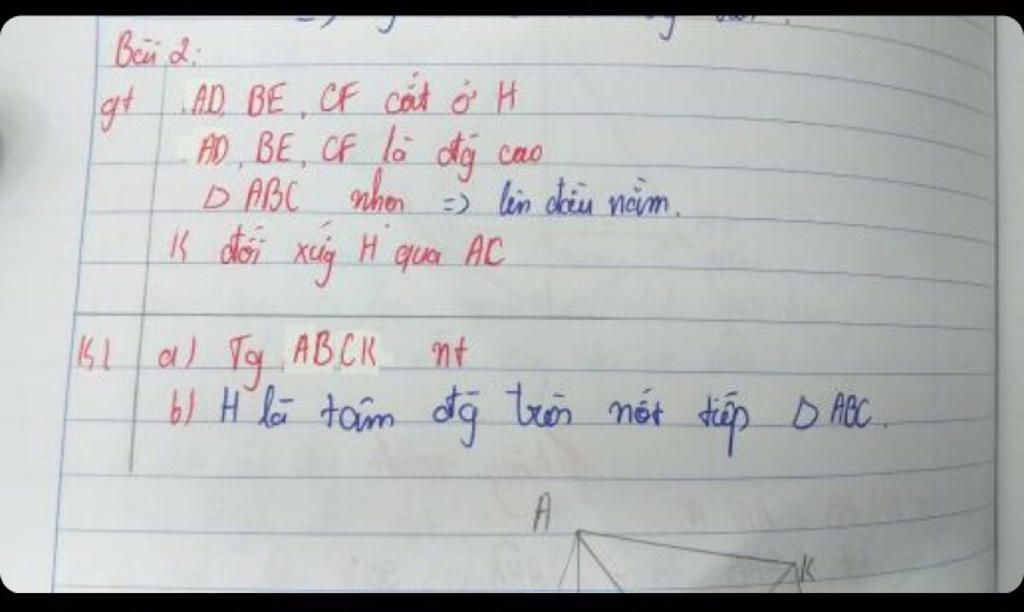 Bài 2:
gt AD, BE, CF cắt ở H
AD, BE, CF là đg cao
Δ ABC nhọn =>
K đối xứg H qua AC
Kl a) Tg ABCK nt
b) H là tâm đg tròn nội tiếp Δ ABC.
A
K